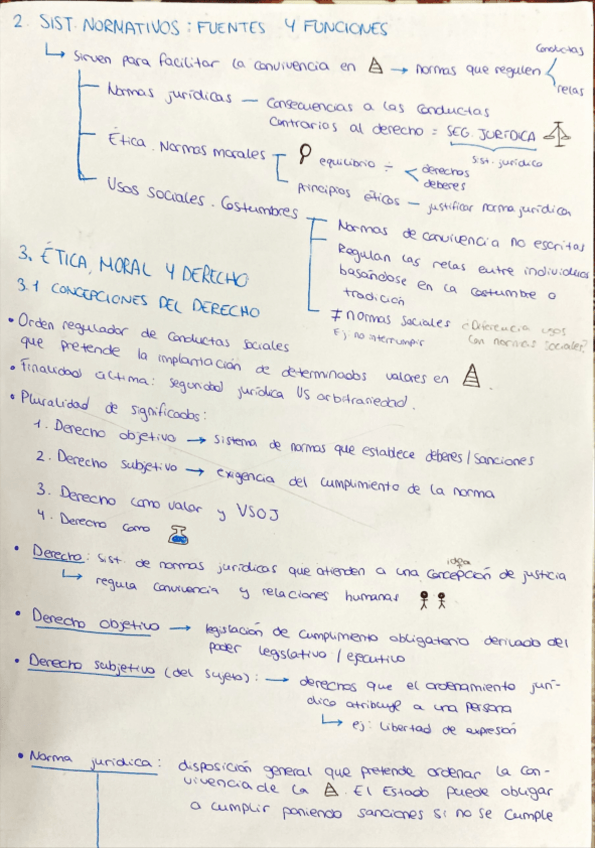 2. SIST. NORMATIVOS: FUENTES Y FUNCIONES
conductas
↳ sirven para facilitar la convivencia en → normas que regulen
relas
Normas jurídicas — Consecuencias a las conductas
contrarios al derecho = SEG. JURÍDICA
sist. jurídico
Ética. Normas morales
equilibrio ÷ derechos
deberes
principios éticos — justificar norma jurídica
Usos sociales. Costumbres
Normas de convivencia no escritas
Regulan las relas entre individuos
basándose en la costumbre o
tradición
≠ normas sociales ¿Diferencia usos
Ej: no interrumpir con normas sociales?
3. ÉTICA, MORAL Y DERECHO
3.1 CONCEPCIONES DEL DERECHO
• Orden regulador de conductas sociales
que pretende la implantación de determinados valores en .
• Finalidad última: seguridad jurídica VS arbitrariedad.
• Pluralidad de significados:
1. Derecho objetivo → sistema de normas que establece deberes/sanciones
2. Derecho subjetivo → exigencia del cumplimiento de la norma
3. Derecho como valor y VSOJ
4. Derecho como
idea
• Derecho: sist. de normas jurídicas que atienden a una concepción de justicia
↳ regula convivencia y relaciones humanas
• Derecho objetivo → legislación de cumplimiento obligatorio derivado del
poder legislativo / ejecutivo
• Derecho subjetivo (del sujeto): → derechos que el ordenamiento jurí-
dico atribuye a una persona
↳ ej: libertad de expresión
• Norma jurídica: disposición general que pretende ordenar la con-
vivencia de la . El Estado puede obligar
a cumplir poniendo sanciones si no se cumple